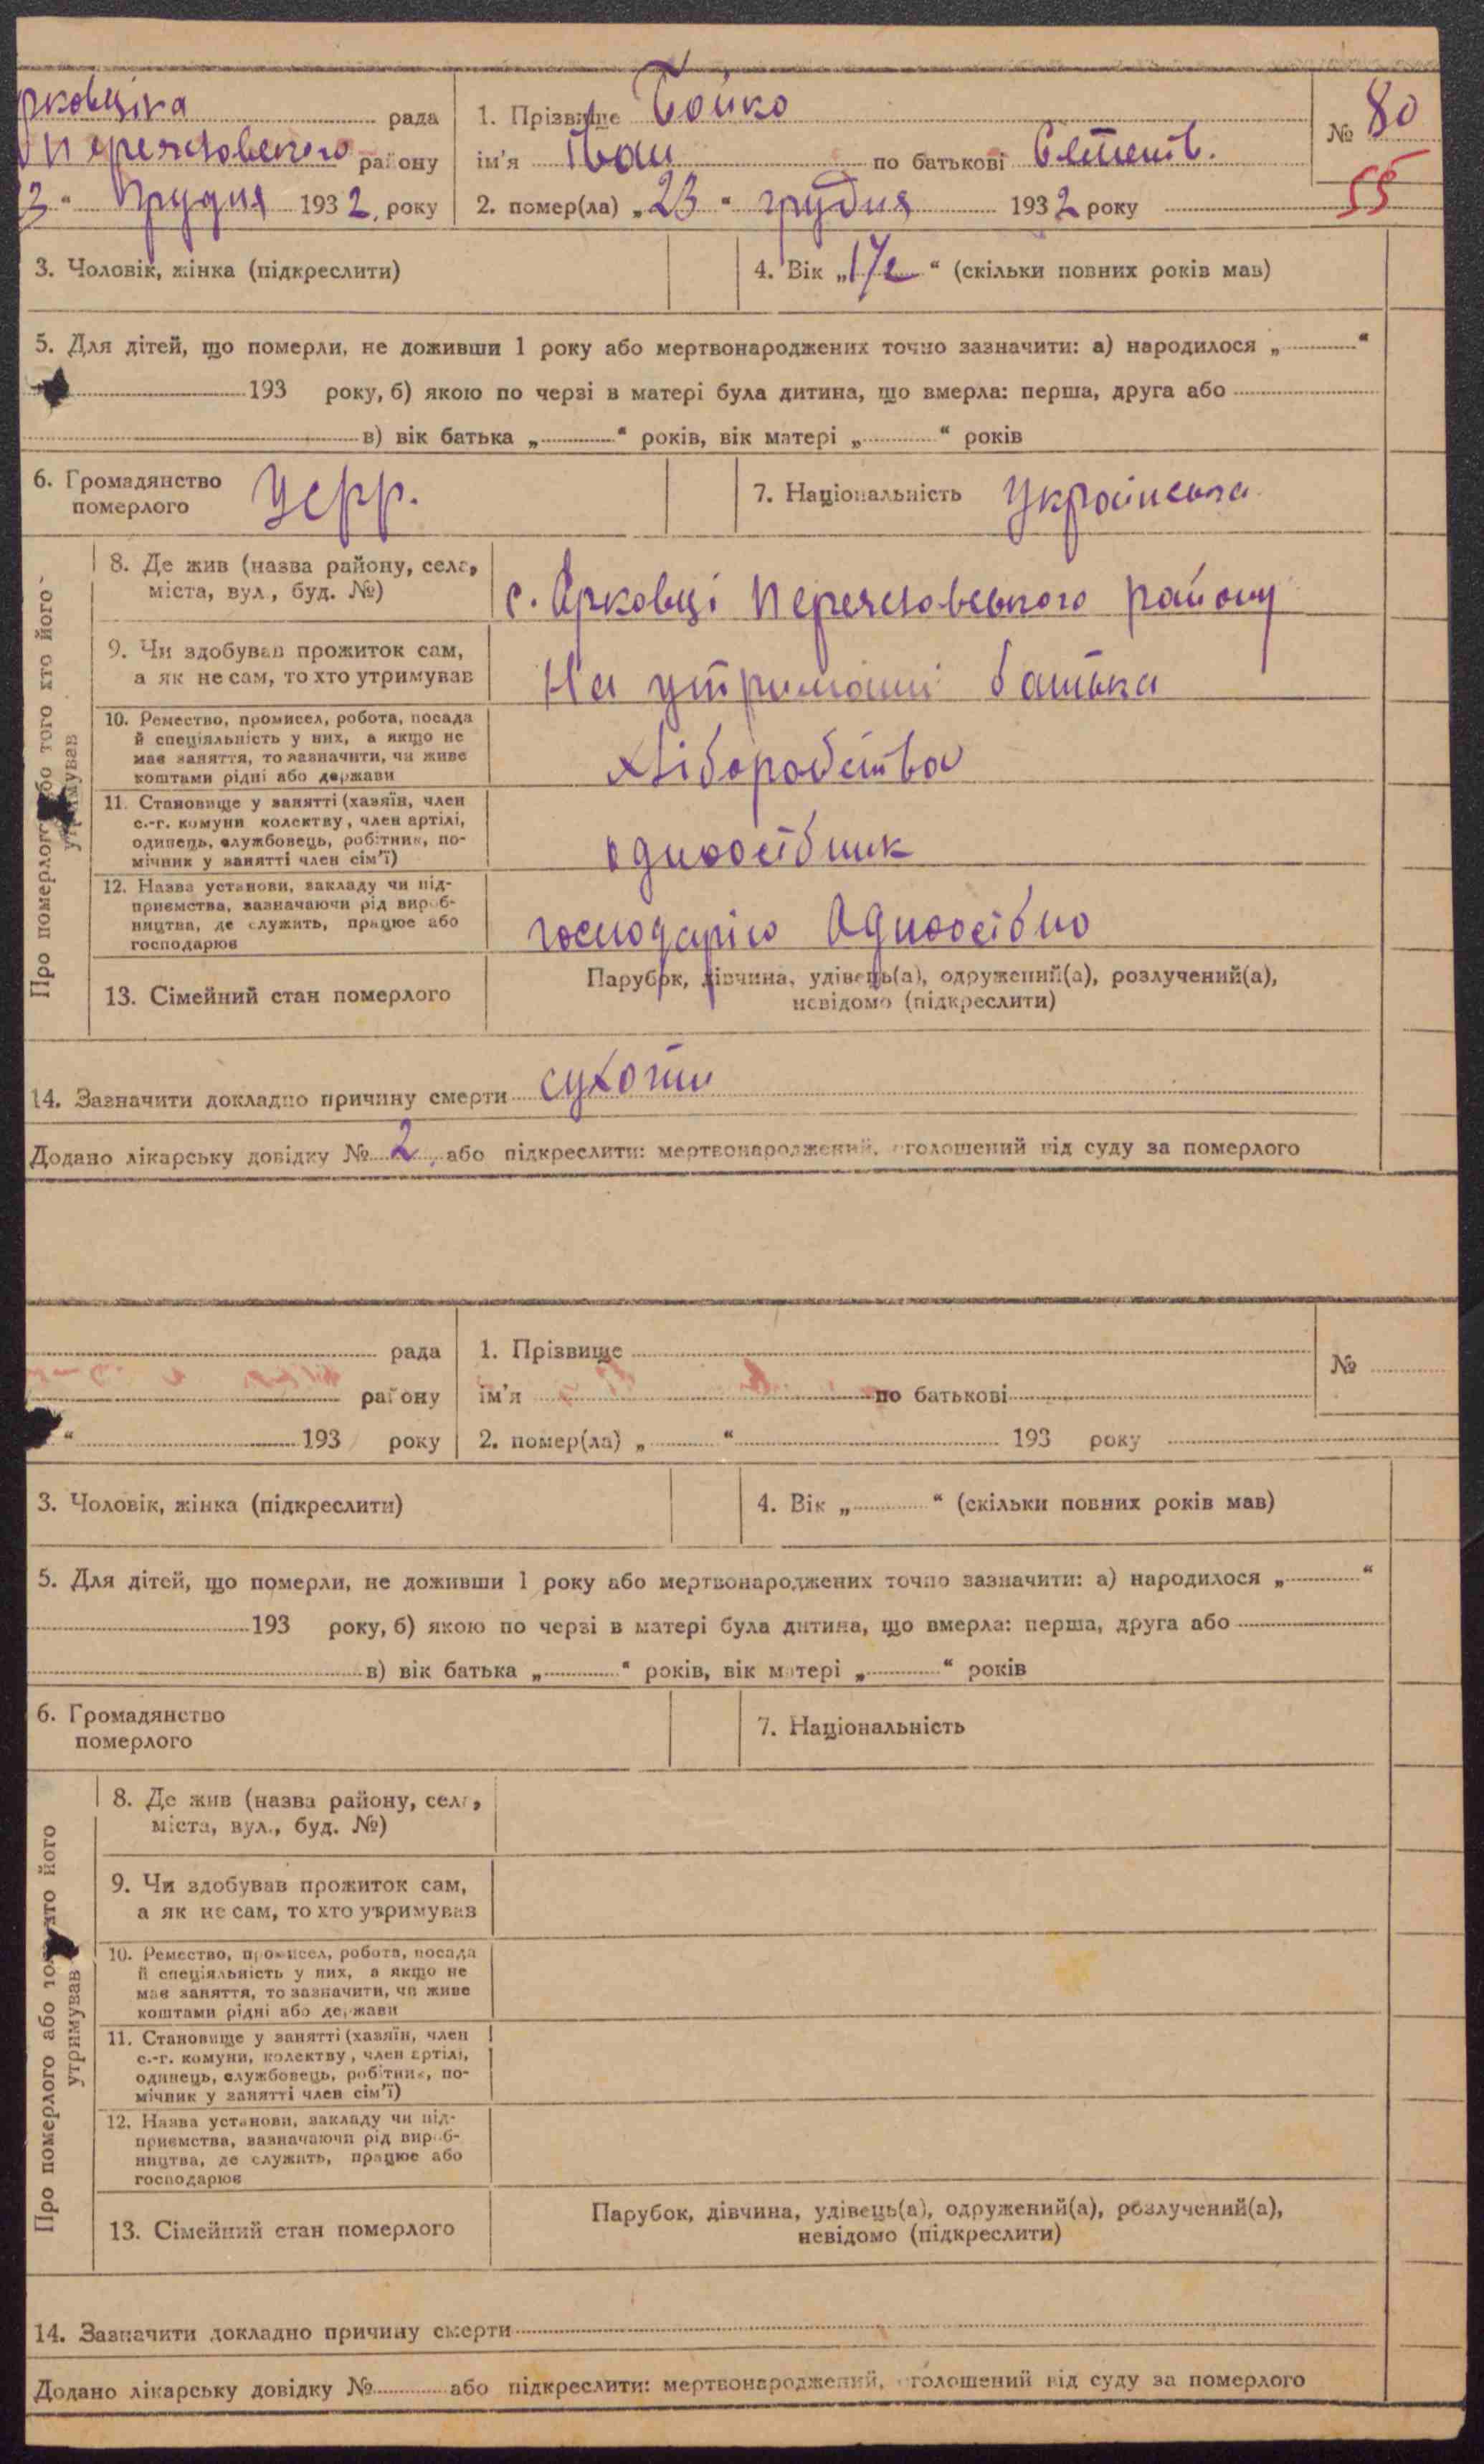 рковціка рада
Переяславського району
3 “ Грудня 1932, року
1. Прізвище Бойко
ім'я Іван по батькові
2. помер(ла) „23“ грудня 1932 року
№ 80
55
3. Чоловік, жінка (підкреслити)
4. Вік „1½“ (скільки повних років мав)
5. Для дітей, що померли, не доживши 1 року або мертвонароджених точно зазначити: а) народилося „ “
193 року, б) якою по черзі в матері була дитина, що вмерла: перша, друга або
в) вік батька „ “ років, вік матері „ “ років
6. Громадянство
померлого
Усрр.
7. Національність Українська
Про померлого або того хто його
утримував
8. Де жив (назва району, села,
міста, вул., буд. №)
с. Ярковці Переяславського району
9. Чи здобував прожиток сам,
а як не сам, то хто утримував
На утриманні батька
10. Ремество, промисел, робота, посада
й спеціяльність у них, а якщо не
має заняття, то зазначити, чи живе
коштами рідні або держави
хліборобство
11. Становище у занятті (хазяїн, член
с.-г. комуни колектву, член артілі,
одинець, службовець, робітник, по-
мічник у занятті член сім'ї)
одноосібник
12. Назва установи, закладу чи під-
приємства, зазначаючи рід вироб-
ництва, де служить, працює або
господарює
господарію Одноосібно
13. Сімейний стан померлого
Парубок, дівчина, удівець(а), одружений(а), розлучений(а),
невідомо (підкреслити)
14. Зазначити докладно причину смерти сухоти
Додано лікарську довідку № 2, або підкреслити: мертвонароджений, оголошений від суду за померлого
рада
району
“ 193 року
1. Прізвище
ім'я по батькові
2. помер(ла) „ “ 193 року
№
3. Чоловік, жінка (підкреслити)
4. Вік „ “ (скільки повних років мав)
5. Для дітей, що померли, не доживши 1 року або мертвонароджених точно зазначити: а) народилося „ “
193 року, б) якою по черзі в матері була дитина, що вмерла: перша, друга або
в) вік батька „ “ років, вік матері „ “ років
6. Громадянство
померлого
7. Національність
Про померлого або того хто його
утримував
8. Де жив (назва району, села,
міста, вул., буд. №)
9. Чи здобував прожиток сам,
а як не сам, то хто утримував
10. Ремество, промисел, робота, посада
й спеціяльність у них, а якщо не
має заняття, то зазначити, чи живе
коштами рідні або держави
11. Становище у занятті (хазяїн, член
с.-г. комуни, колектву, член артілі,
одинець, службовець, робітник, по-
мічник у занятті член сім'ї)
12. Назва установи, закладу чи під-
приємства, зазначаючи рід вироб-
ництва, де служить, працює або
господарює
13. Сімейний стан померлого
Парубок, дівчина, удівець(а), одружений(а), розлучений(а),
невідомо (підкреслити)
14. Зазначити докладно причину смерти
Додано лікарську довідку № або підкреслити: мертвонароджений, оголошений від суду за померлого